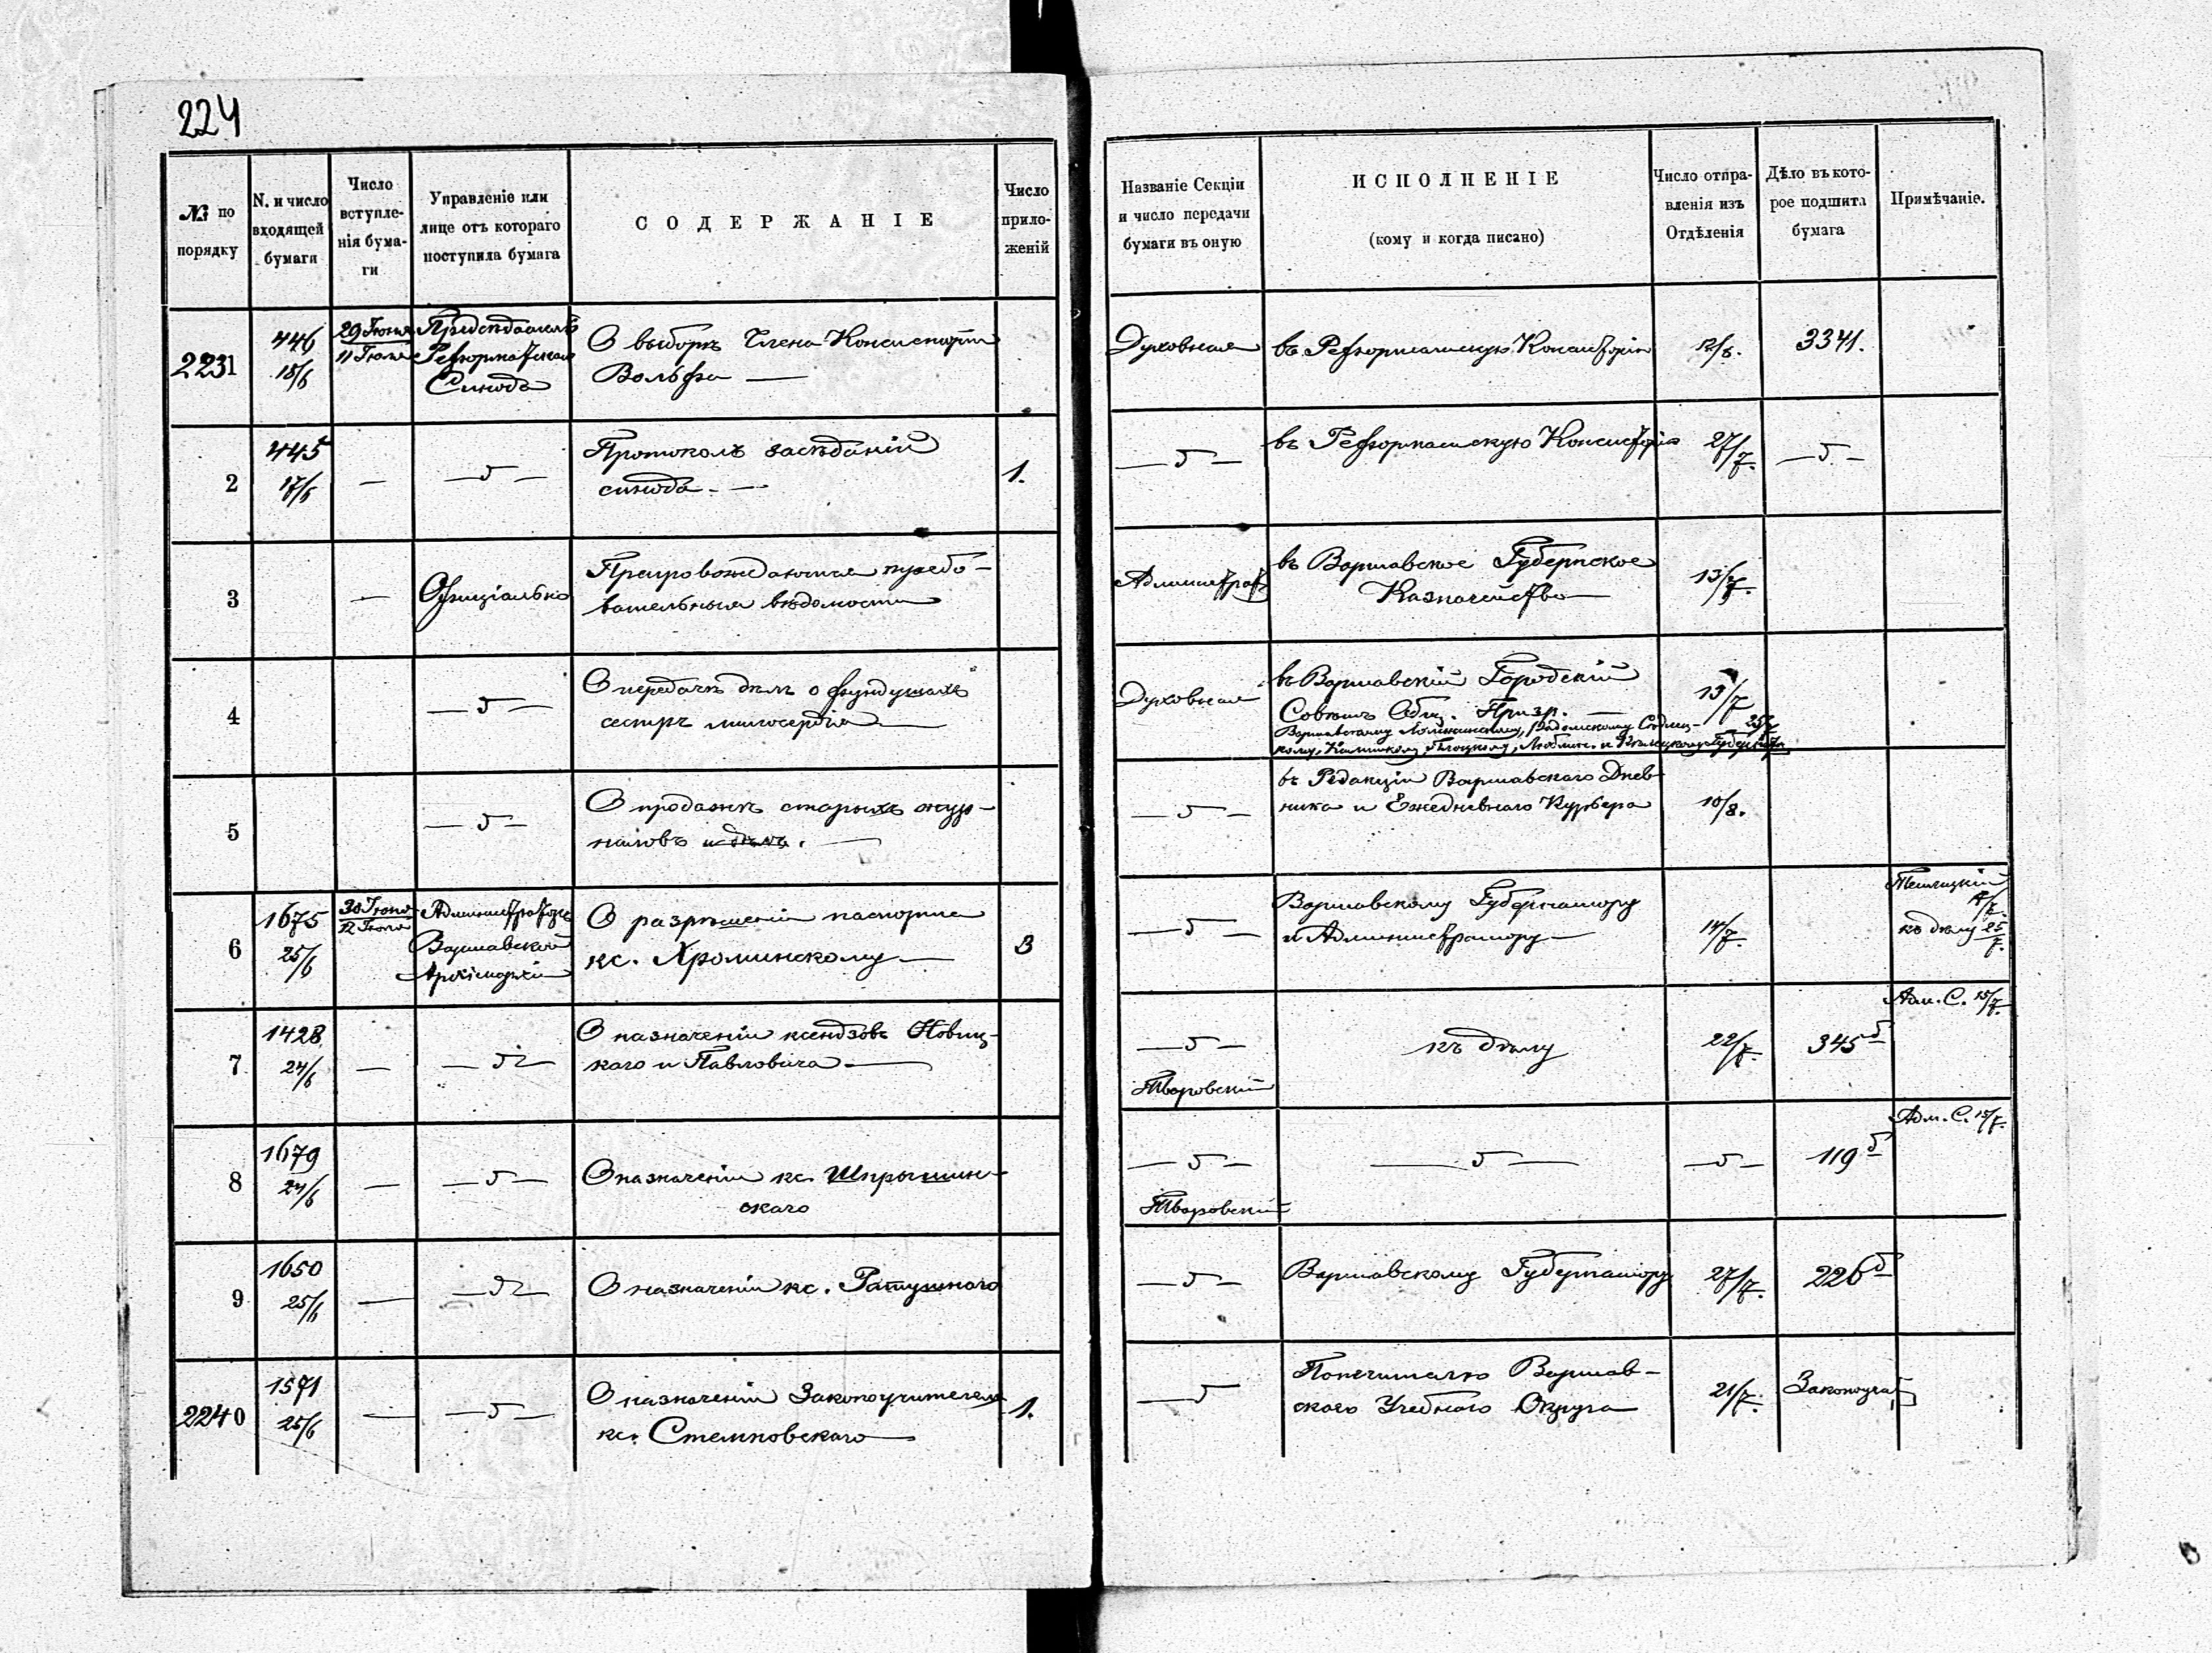 224
№ по порядку
N. и число входящей бумаги
Число вступленія бумаги
Управленіе или лице отъ котораго поступила бумага
СОДЕРЖАНІЕ
Число приложеній
Названіе Секціи и число передачи бумаги въ оную
ИСПОЛНЕНІЕ
(кому и когда писано)
Число отправленія изъ Отдѣленія
Дѣло въ которое подшита бумага
Примѣчаніе.
2231
446
18/6
29 Іюня
11 Іюля
Предсѣдатель
Реформатскаго
Синода
О выборѣ Члена Консисторіи
Вольфа —
Духовная
въ Реформатскую Консисторію
12/8.
3341.
2
445
17/6
Протоколъ засѣданій
синода. —
1.
въ Реформатскую Консисторію
27/7.
3
Офиціально
Препровождаются требо-
вательныя вѣдомости
Администрат
въ Варшавское Губернское
Казначейство
13/7.
4
О передачѣ дѣлъ о фундушахъ
сестръ милосердія —
Духовная
въ Варшавскій Городской
Совѣтъ Общ. Призр. —
13/7
25/7
Варшавскому Ломжинскому, Радомскому Сѣдлец-
кому, Калишкому, Плоцкому, Люблин. и Кѣлецкому Губерн
5
О продажѣ старыхъ жур-
наловъ и дѣлъ. —
въ Редакціи Варшавскаго Днев-
ника и Ежедневнаго Курьера
10/8.
6
1675
25/6
30 Іюня
12 Іюля
Администраторъ
Варшавской
Архіепархіи
О разрѣшеніи паспорта
кс. Хроминскому —
3
Варшавскому Губернатору
и Администратору —
14/7.
къ дѣлу 25/7.
7
1428
24/6
О назначеніи ксендзовъ Новиц-
каго и Павловича —
Творовскій
къ дѣлу
22/7.
345 б
Адм. С. 15/7.
8
1679
24/6
О назначеніи кс.
скаго
Творовскій
119 б
Адм. С. 15/7.
9
1650
25/6
О назначеніи кс. Ратушнаго
Варшавскому Губернатору
27/7.
226 б
2240
1571
25/6
О назначеніи Законоучителемъ
кс. Стемповскаго —
1.
Попечителю Варшав-
скаго Учебнаго Округа
21/7.
Законоучит